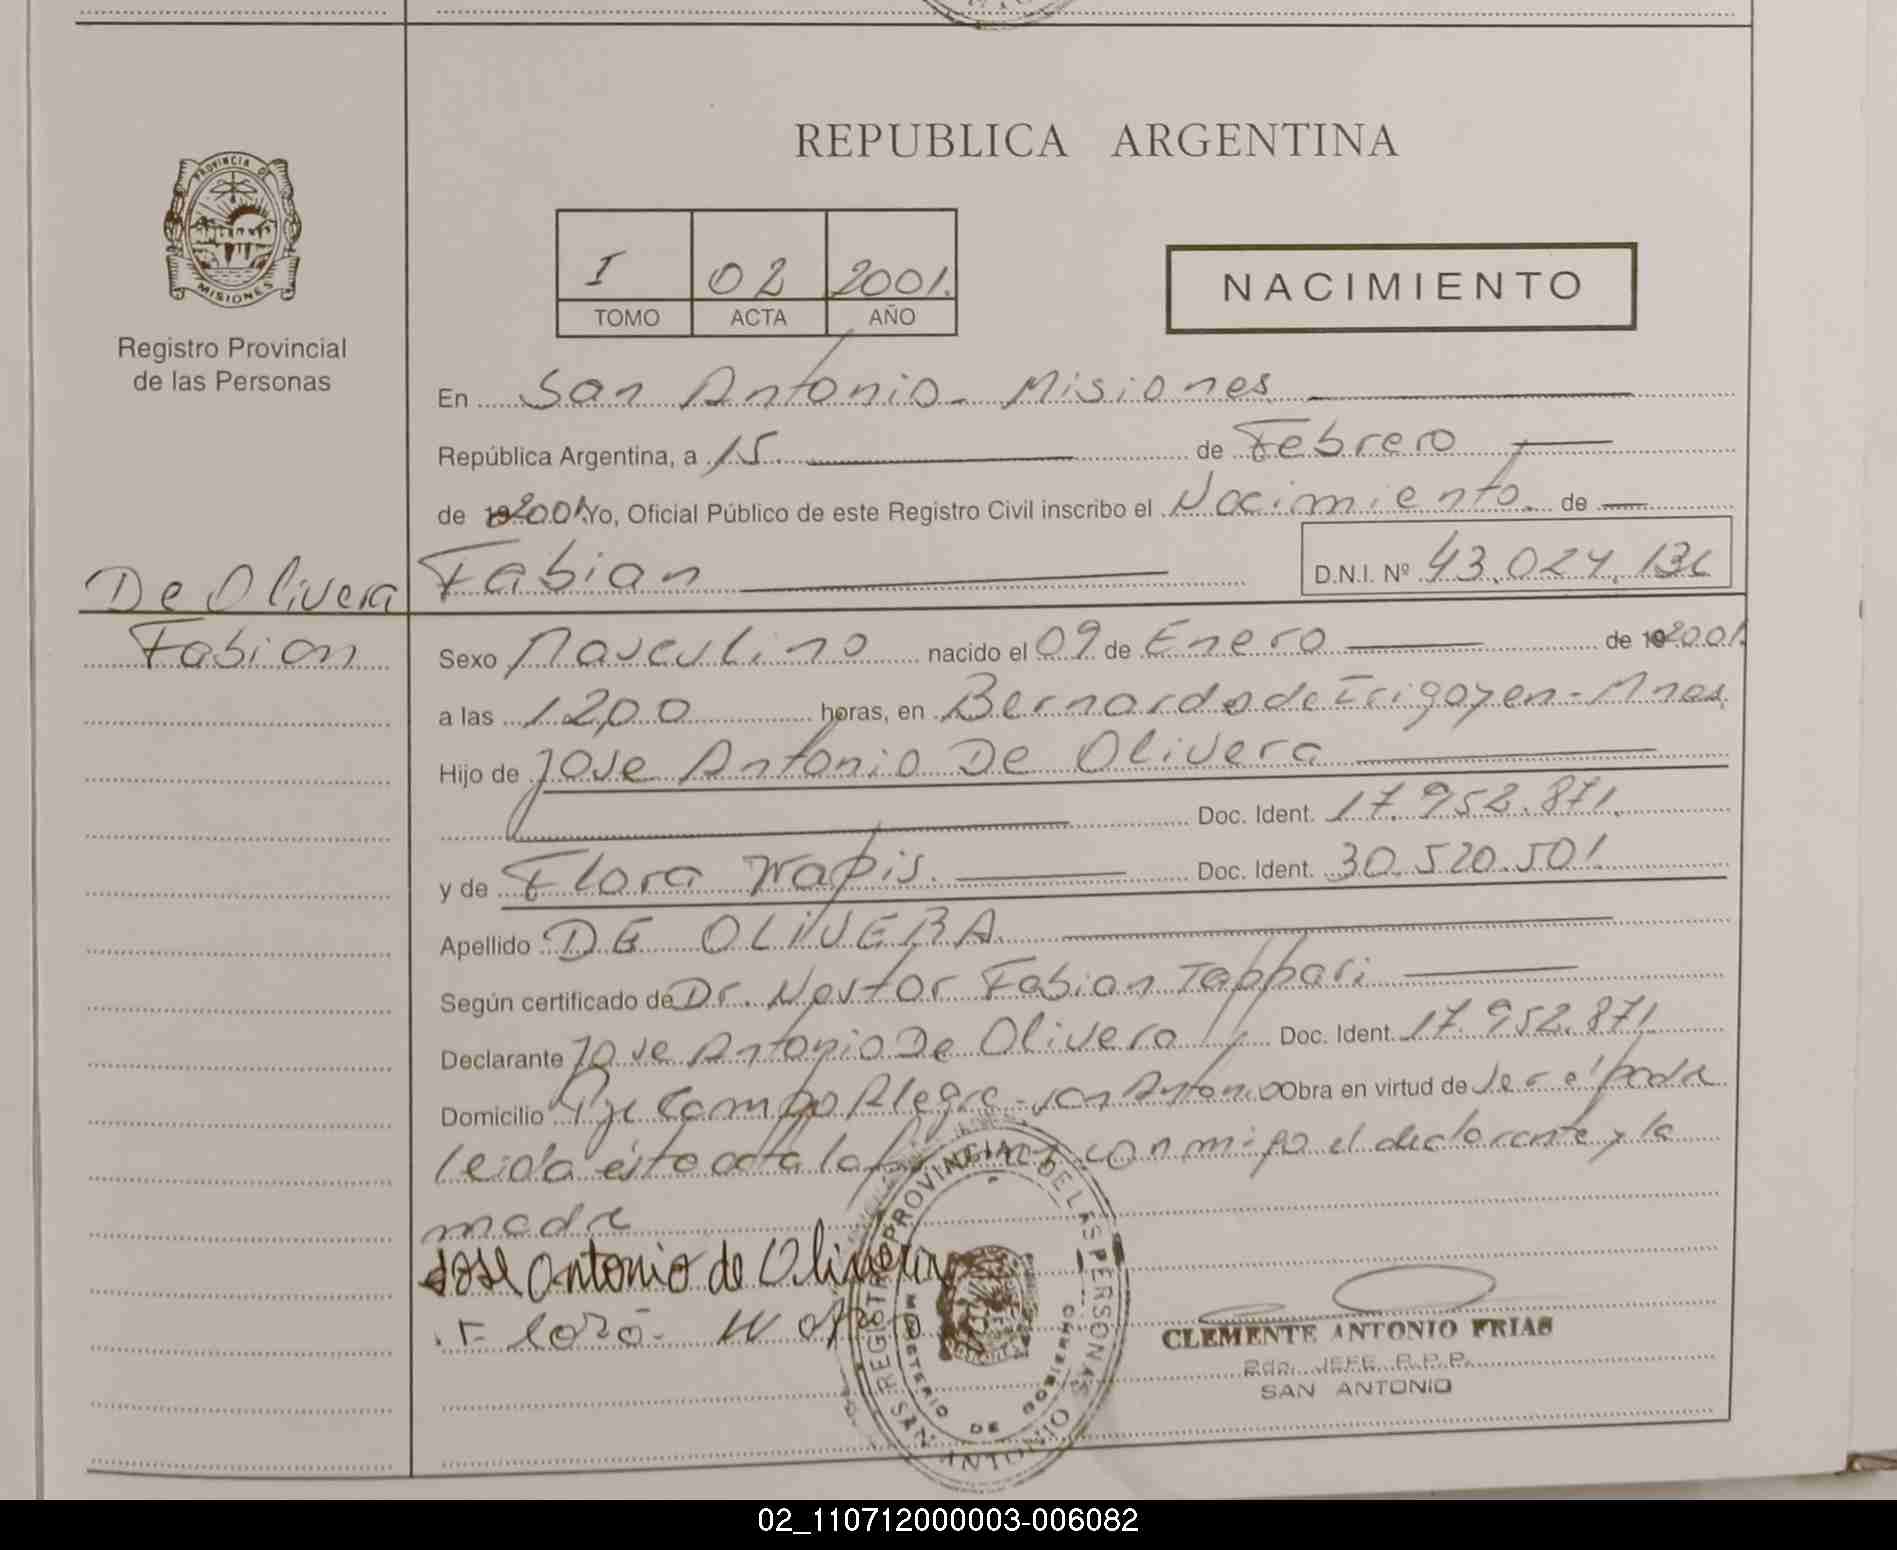 REPUBLICA ARGENTINA
PROVINCIA DE
MISIONES
Registro Provincial
de las Personas
I 02 2001.
TOMO ACTA AÑO
NACIMIENTO
En San Antonio - Misiones
República Argentina, a 15 de Febrero
de 2001 Yo, Oficial Público de este Registro Civil inscribo el Nacimiento. de
De Olivera
Fabian
Fabian
D.N.I. Nº 43.024.136
Sexo Masculino nacido el 09 de Enero de 2001.
a las 12,00 horas, en Bernardo de Irigoyen - Mnes.
Hijo de Jose Antonio De Olivera
Doc. Ident. 17.952.871.
y de Flora Wapis. Doc. Ident. 30.520.501
Apellido DE OLIVERA
Según certificado de Dr. Nestor Fabian Tappari
Declarante Jose Antonio De Olivera Doc. Ident. 17.952.871
Domicilio Pje Campo Alegre - San Antonio Obra en virtud de Ser el padre
leida ésta acta la con migo el declarante y la
madre
Jose Antonio de Olivera
Flora
REGISTRO PROVINCIAL DE LAS PERSONAS
MINISTERIO DE GOBIERNO
SAN ANTONIO
CLEMENTE ANTONIO FRIAS
JEFE R.P.P.
SAN ANTONIO
02_110712000003-006082